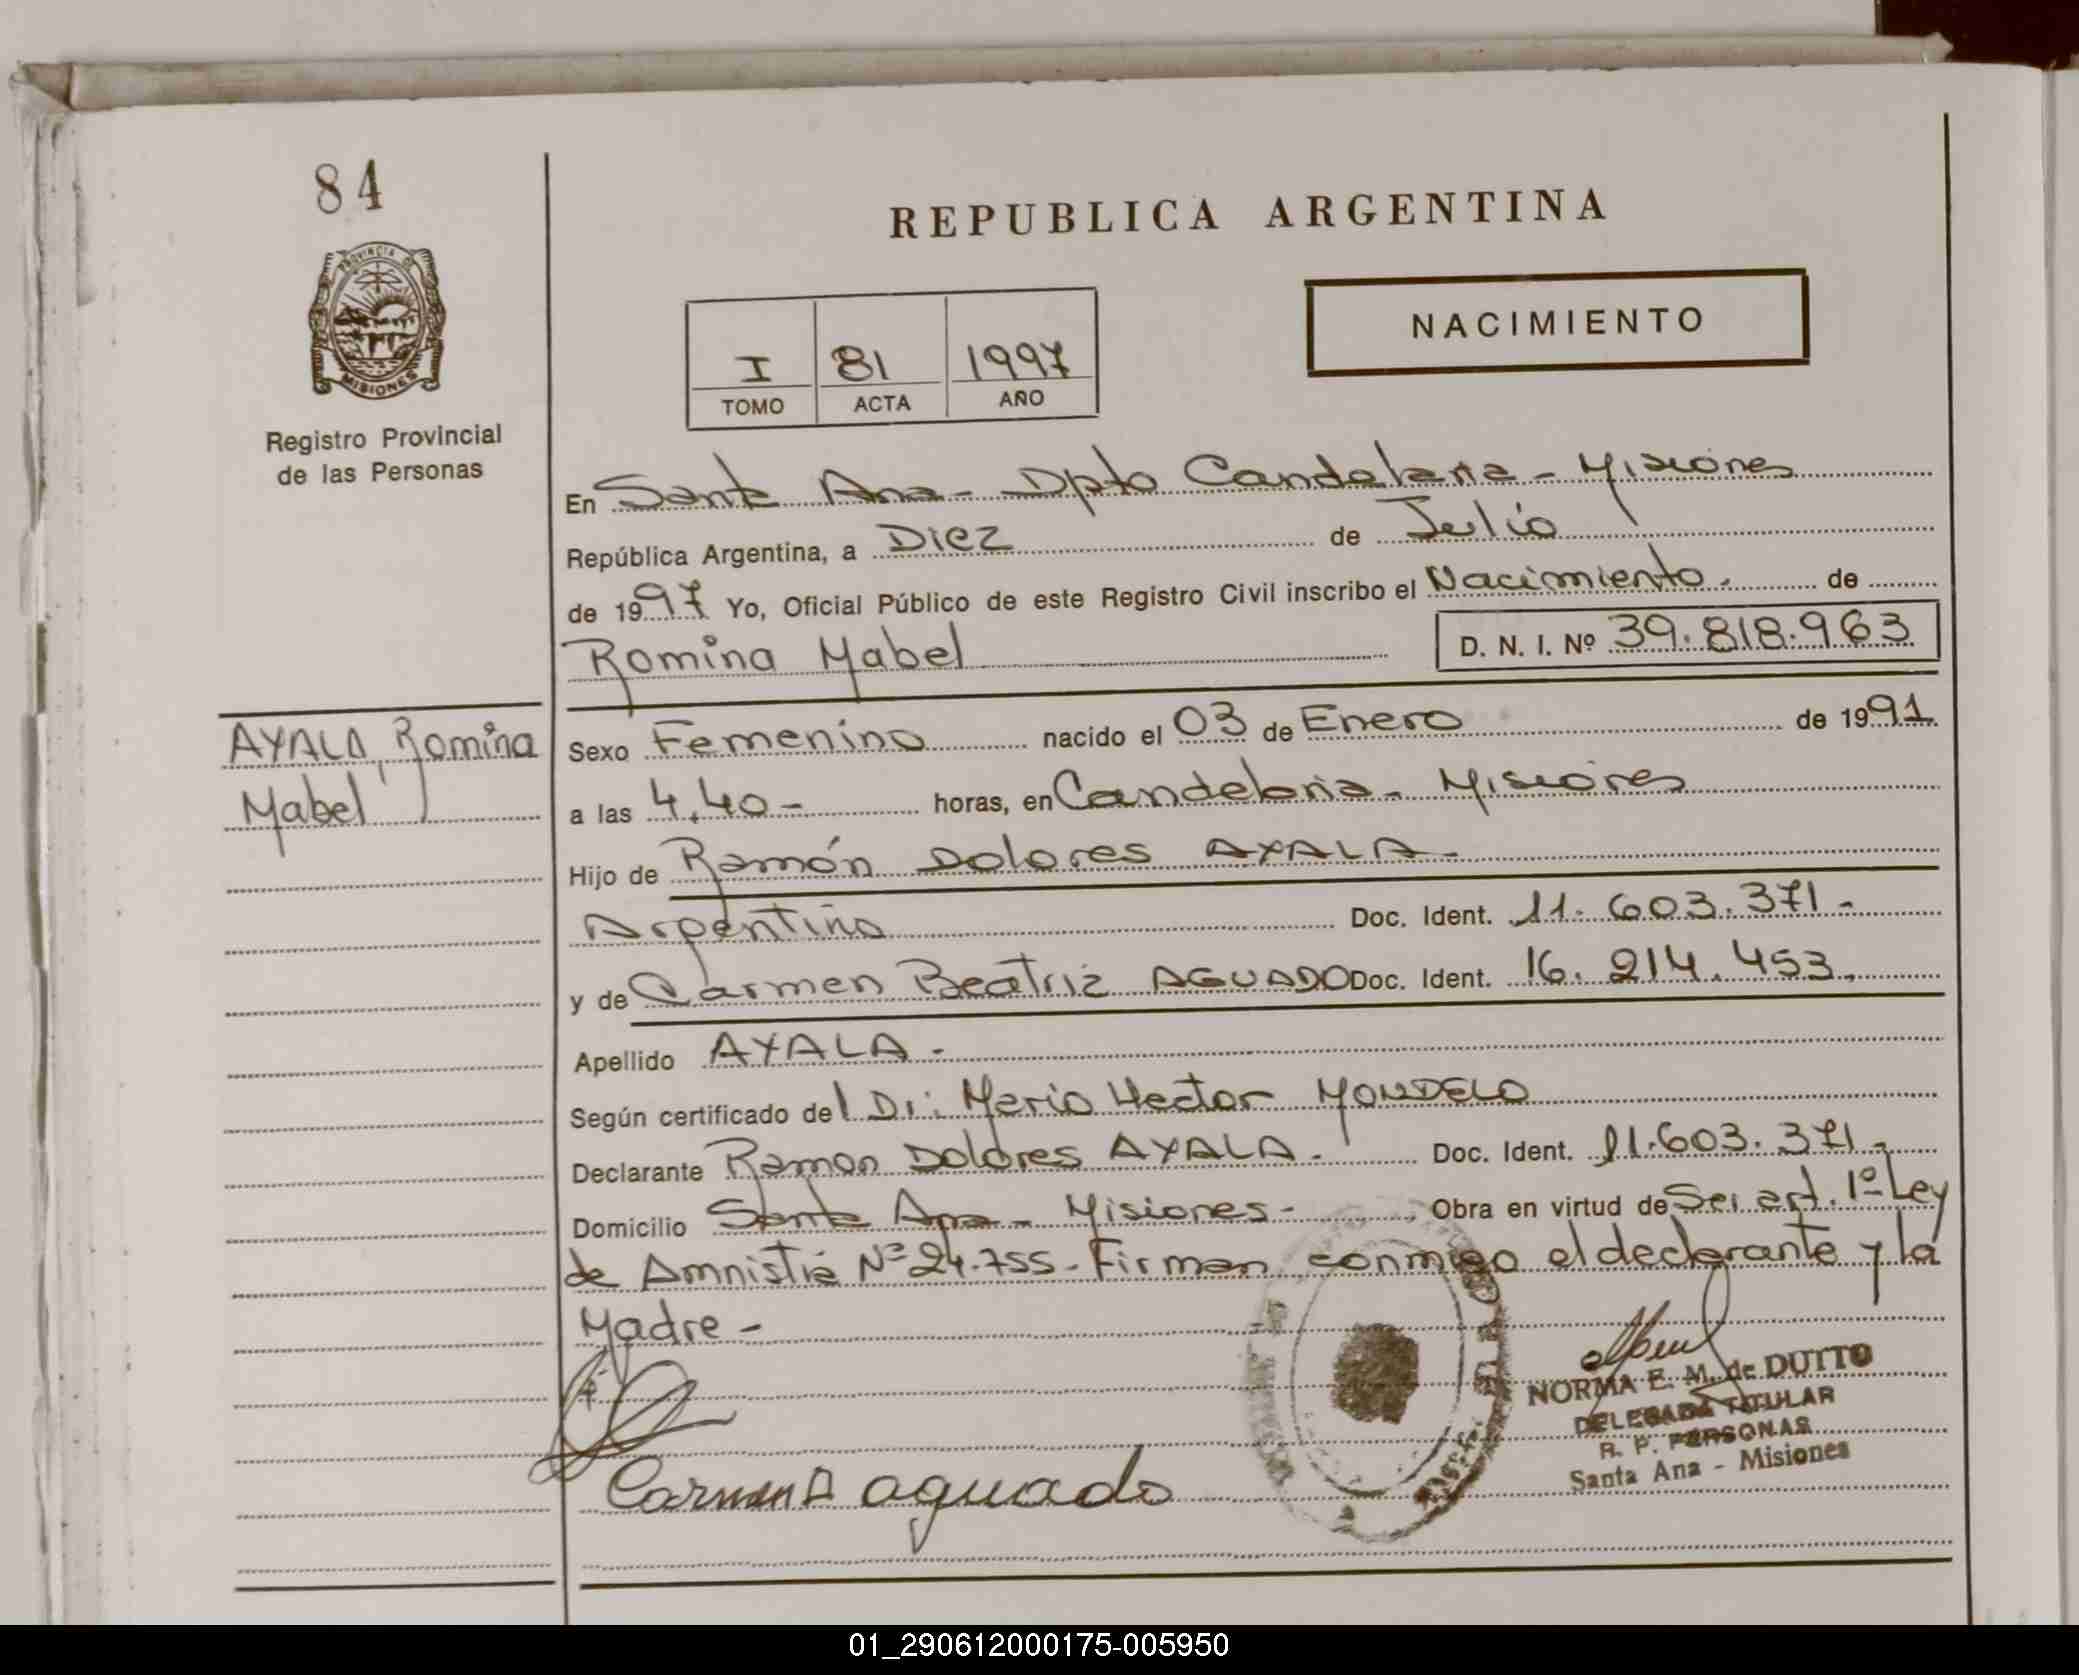 84
REPUBLICA ARGENTINA
PROVINCIA DE
MISIONES
Registro Provincial
de las Personas
I 81 1997
TOMO ACTA AÑO
NACIMIENTO
En Santa Ana - Dpto Candelaria - Misiones
República Argentina, a Diez de Julio
de 1997 Yo, Oficial Público de este Registro Civil inscribo el Nacimiento. de
Romina Mabel D. N. I. Nº 39.818.963
AYALA, Romina
Mabel
Sexo Femenino nacido el 03 de Enero de 1991.
a las 4.40- horas, en Candelaria - Misiones
Hijo de Ramón Dolores AYALA -
Argentino Doc. Ident. 11.603.371-
y de Carmen Beatriz AGUADO Doc. Ident. 16.214.453.
Apellido AYALA -
Según certificado del Dr: Mario Hector MONDELO
Declarante Ramon Dolores AYALA. Doc. Ident. 11.603.371-
Domicilio Santa Ana - Misiones - Obra en virtud de art. 1º Ley
de Amnistia Nº 24.755 - Firman conmigo el declarante y la
Madre -
NORMA E. M. de DUTTO
DELEGADA TITULAR
R. P. PERSONAS
Santa Ana - Misiones
Carmen B aguado
01_290612000175-005950